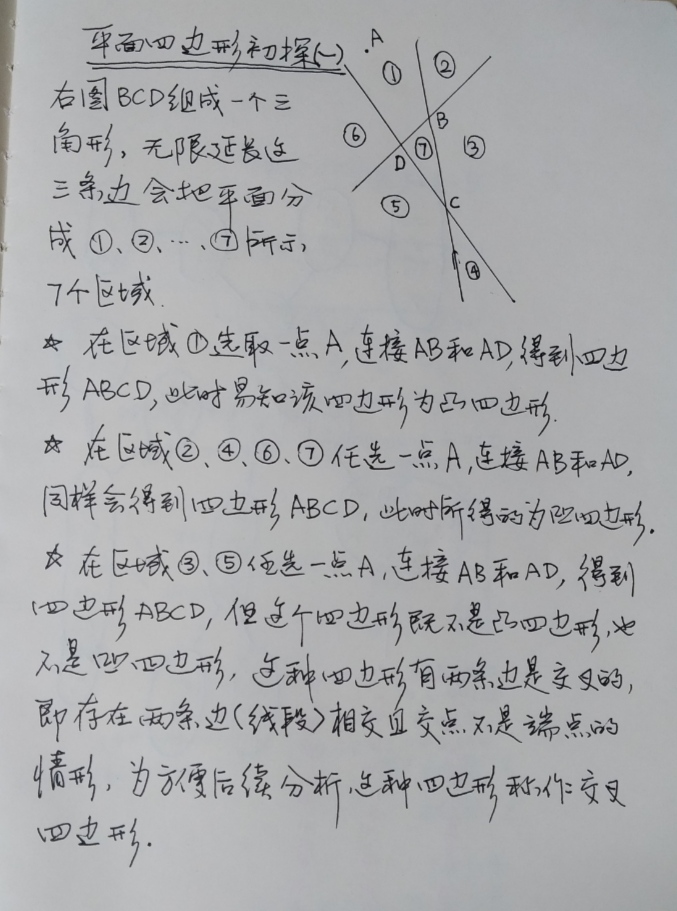 平面四边形初探(一)
A
① ②
右图BCD组成一个三
B
角形，无限延长这
⑥ D ⑦ ③
三条边会把平面分
⑤ C
成 ①、②、…、⑦所示
④
7个区域.
☆ 在区域①选取一点A,连接AB和AD,得到四边
形ABCD,此时易知该四边形为凸四边形.
☆ 在区域②、④、⑥、⑦任选一点A,连接AB和AD,
同样会得到四边形ABCD,此时所得的为凹四边形.
☆ 在区域③、⑤任选一点A,连接AB和AD,得到
四边形ABCD,但这个四边形既不是凸四边形,也
不是凹四边形,这种四边形有两条边是交叉的,
即存在两条边(线段)相交且交点不是端点的
情形,为方便后续分析,这种四边形称作:交叉
四边形.